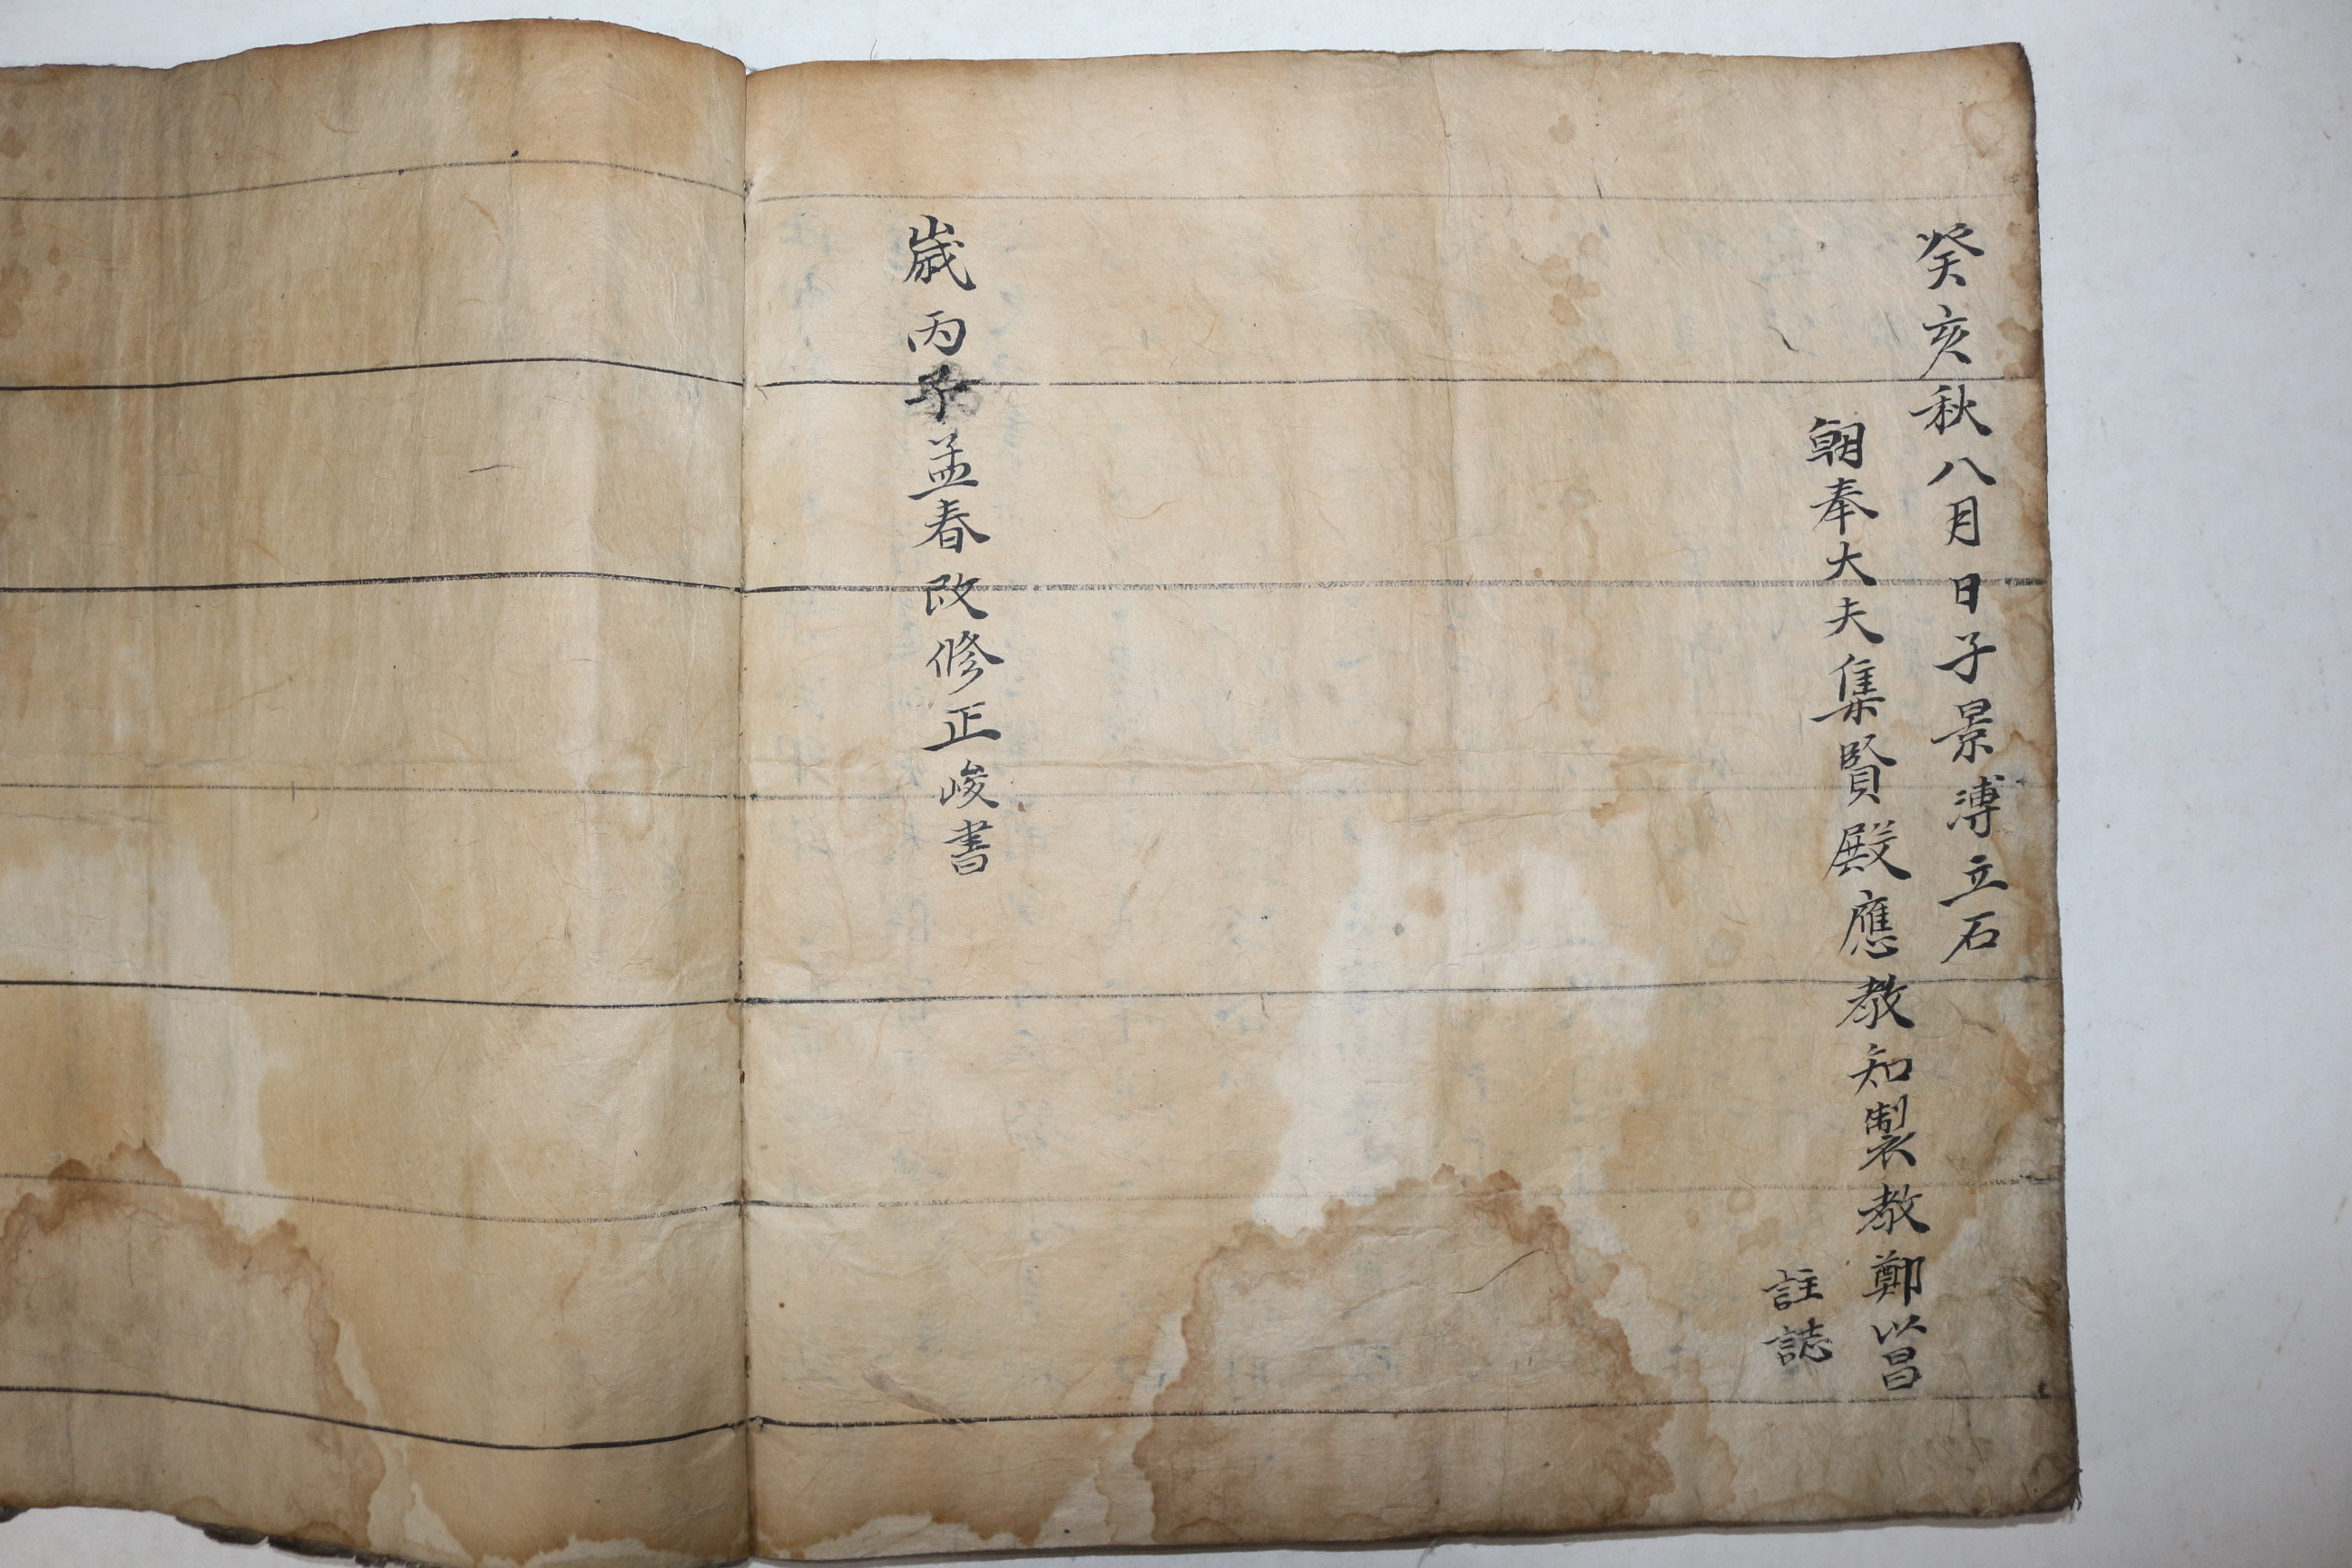 癸亥秋八月日子景溥立石
朝奉大夫集賢殿應教知製教鄭以昌
註誌
歲丙子孟春改修正峻書